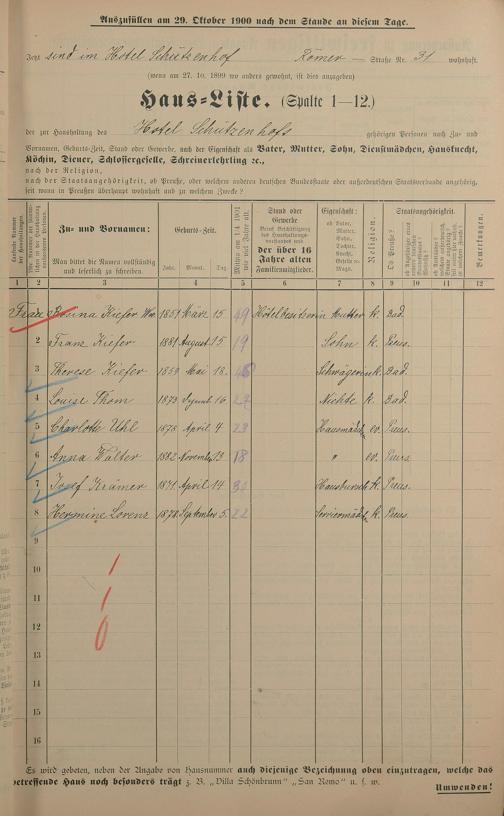 Auszufüllen am 29. Oktober 1900 nach dem Stande an diesem Tage.
Jetzt sind im Hotel Schützenhof Römer – Straße Nr. 31 wohnhaft.
(wenn am 27. 10. 1899 wo anders gewohnt, ist dies anzugeben)
Haus-Liste. (Spalte 1—12.)
der zur Haushaltung des Hotel Schützenhofs gehörigen Personen nach Zu- und
Vornamen, Geburts-Zeit, Stand oder Gewerbe, nach der Eigenschaft als Vater, Mutter, Sohn, Dienstmädchen, Hausknecht,
Köchin, Diener, Schlossergeselle, Schreinerlehrling &c.,
nach der Religion,
nach der Staatsangehörigkeit, ob Preuße, oder welchem anderen deutschen Bundesstaate oder außerdeutschen Staatsverbande angehörig,
seit wann in Preußen überhaupt wohnhaft und zu welchem Zwecke?
Zu- und Vornamen:
Man bittet die Namen vollständig und leserlich zu schreiben.
Geburts-Zeit.
Jahr. Monat. Tag.
Stand oder Gewerbe
der über 16 Jahre alten Familienmitglieder.
Eigenschaft:
ob Vater, Mutter, Sohn, Tochter, Knecht, Geselle &c. Magd.
Religion.
Staatsangehörigkeit.
Ob Preuße?
Bemerkungen.
1 2 3 4 5 6 7 8 9 10 11 12
Frau Rosina Kiefer Wwe 1851 März 15 49 Hôtelbesitzerin Mutter k. Bad.
2 Franz Kiefer 1881 August 15 19 Sohn k. Preus.
3 Therese Kiefer 1859 Mai 18 Schwägerin k. Bad.
4 Louise Thom 1873 16 27 Nichte k. Bad.
5 Charlotte Uhl 1878 April 4 23 Hausmädch. ev. Preus.
6 Anna Walter 1882 November 13 18 " ev. Preus
7 Josef Krämer 1871 April 14 30 Hausbursch k. Preus.
8 Hermine Lorenz 1878 September 5 22 Serviermädch. k. Preus.
9
10
11
12
13
14
15
16
Es wird gebeten, neben der Angabe von Hausnummer auch diejenige Bezeichnung oben einzutragen, welche das
betreffende Haus noch besonders trägt z. B. „Villa Schönbrunn" „San Remo" u. s. w.
Umwenden!